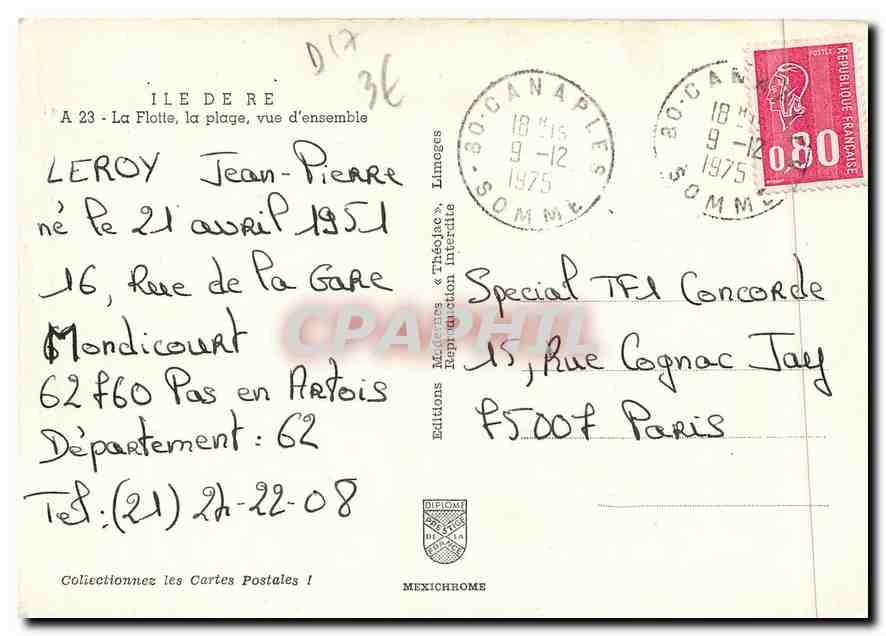 D17
3€
ILE DE RE
A 23 - La Flotte, la plage, vue d'ensemble
LEROY Jean-Pierre
né le 21 avril 1951
16, Rue de la Gare
Mondicourt
62760 Pas en Artois
Département : 62
Tel : (21) 24-22-08
Collectionnez les Cartes Postales !
Editions Modernes « Théojac », Limoges
Reproduction interdite
CPAPHIL
DIPLOME
PRESTIGE
DE LA
FRANCE
MEXICHROME
80-CANAPLES
18 H15
9-12
1975
SOMME
80-CANA
18 H
9-12
1975
SOMME
POSTES
REPUBLIQUE FRANÇAISE
0,80
Special TF1 Concorde
15, Rue Cognac Jay
75007 Paris